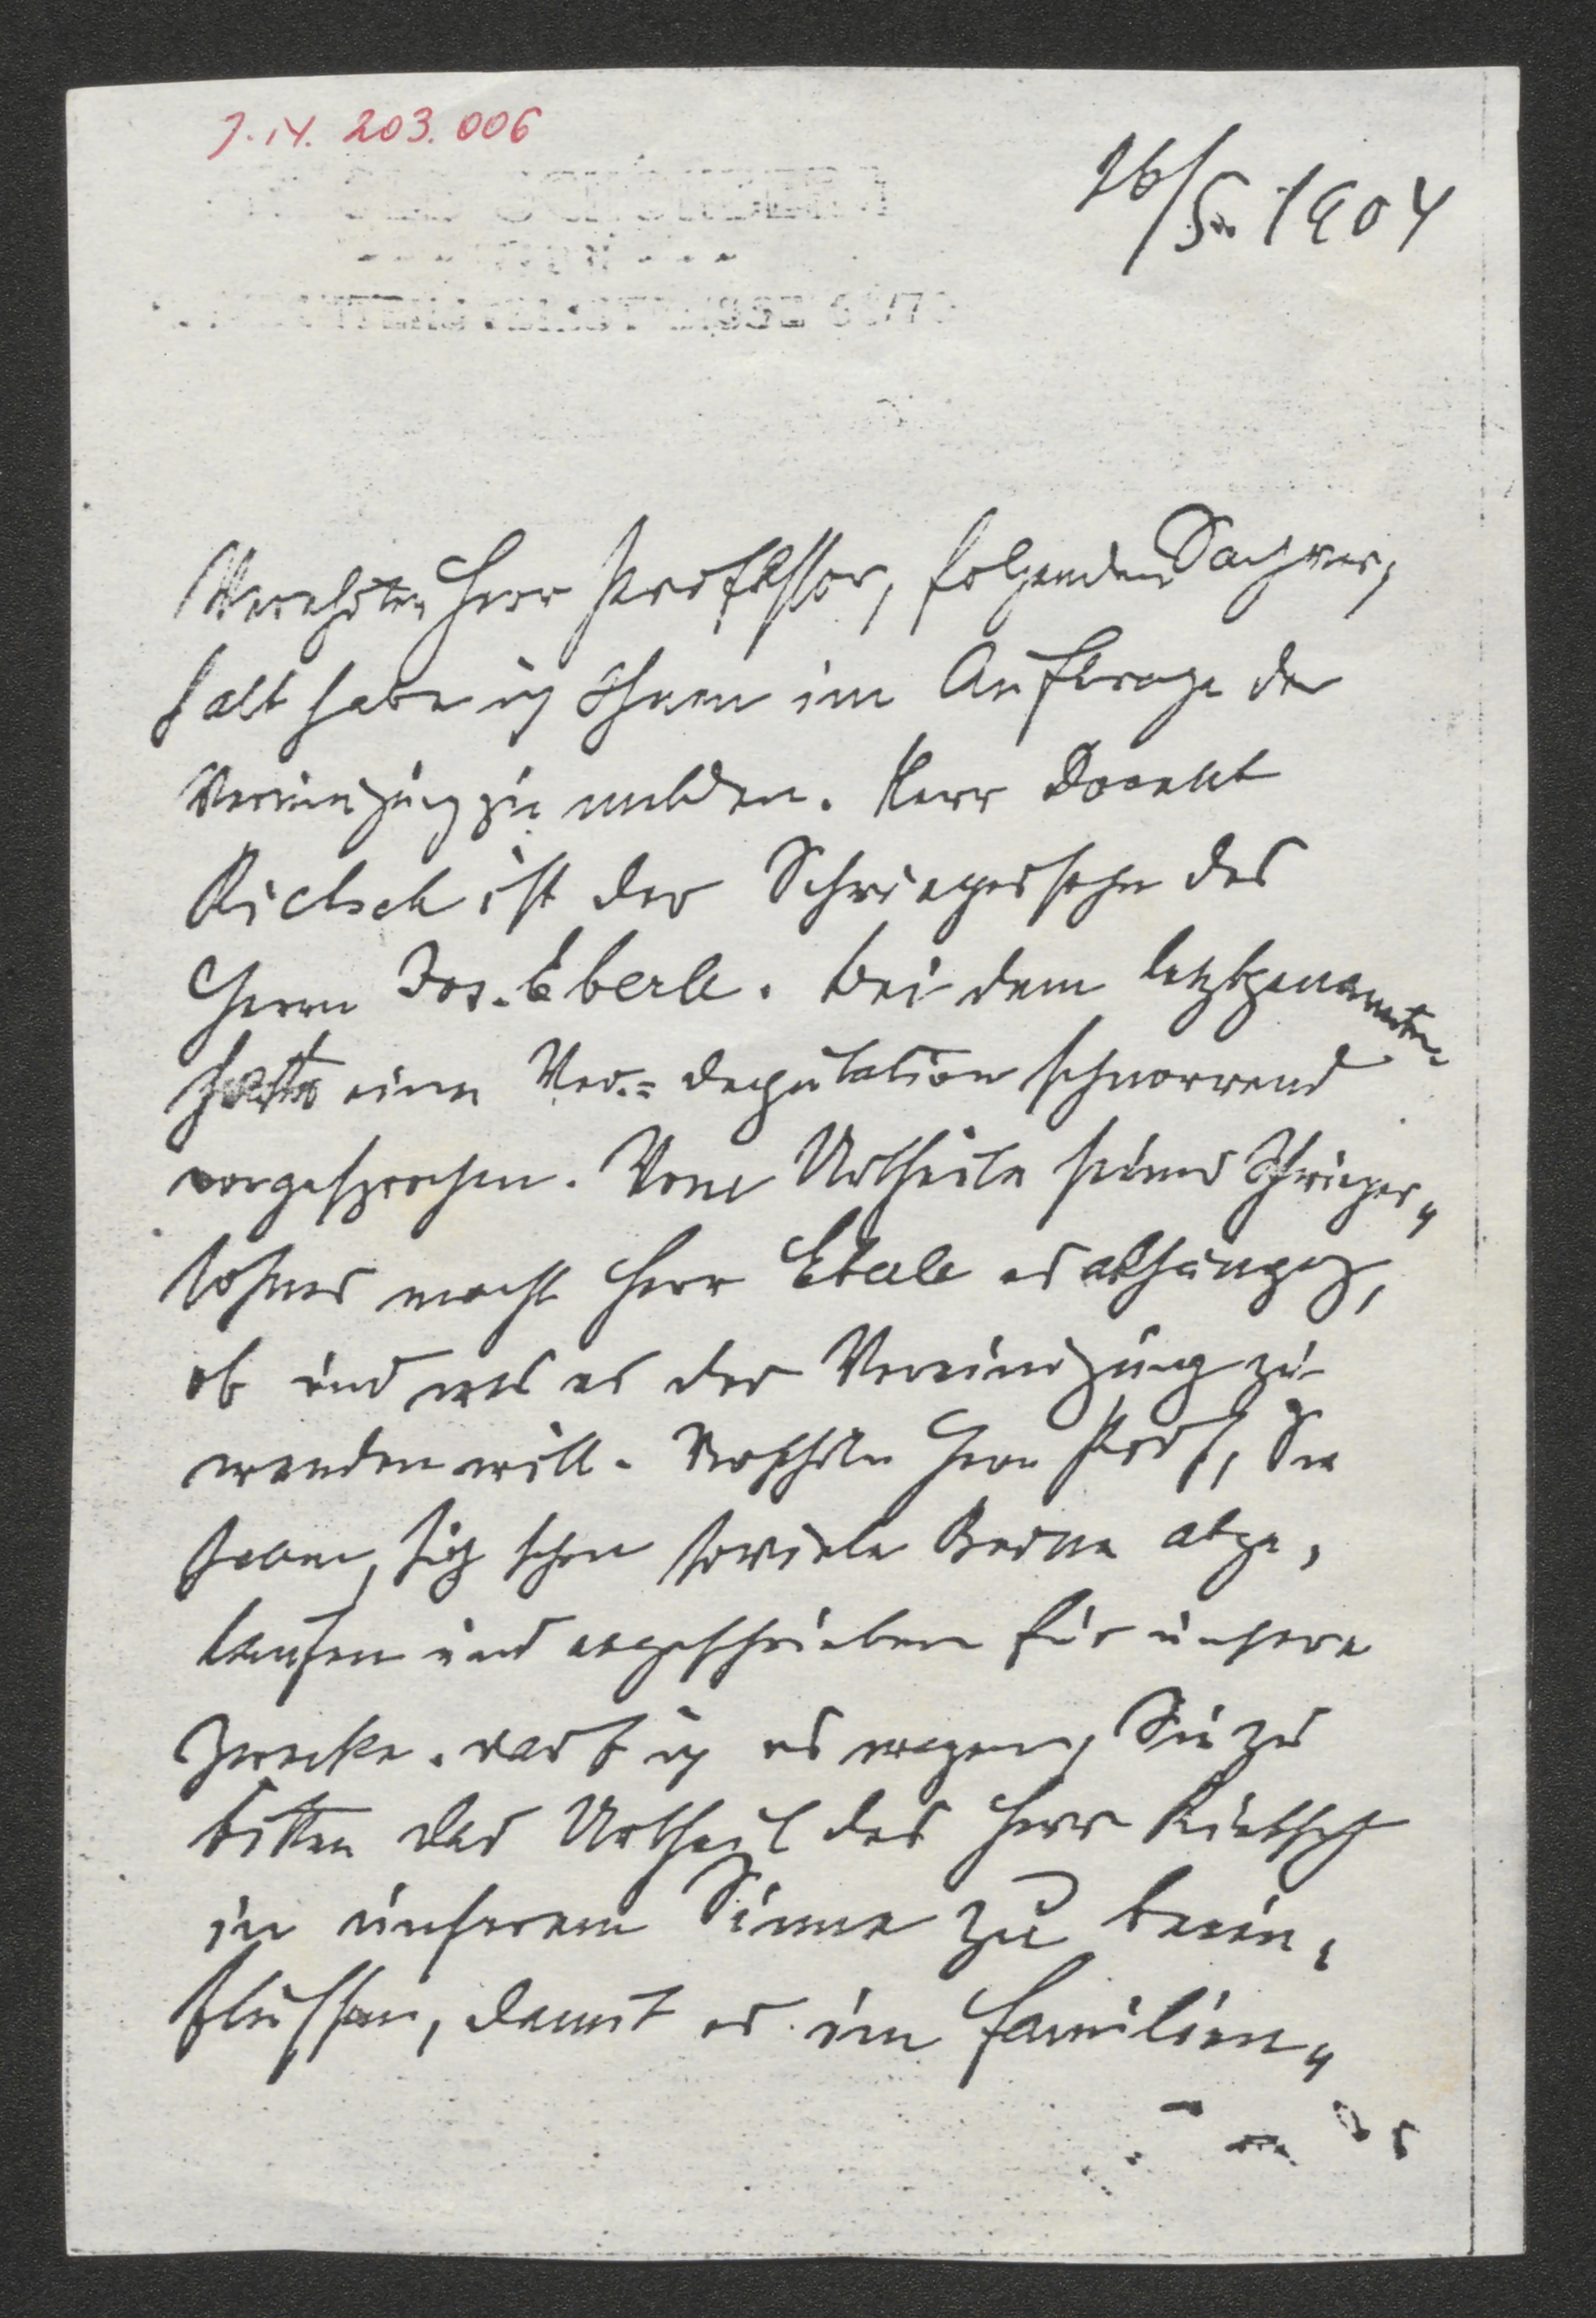 J. IV. 203.006
26/5. 1904
Verehrter Herr Professor, folgenden Sachver,
halt habe ich Ihnen im Auftrage der
Vereinigung zu melden. Herr Docent
Rietsch ist der Schwiegersohn des
Herrn Jos. Eberle. Bei dem letztgenannten
hatte eine Ver.= deputation schnorrend
vorgesprochen. Vom Urtheile seines Schwieger„
sohnes macht Herr Eberle es abhängig,
ob und was er der Vereinigung zu
wenden will. Verehrter Herr Prof, Sie
haben sich schon soviele Beine abge,
laufen und abgeschrieben für unsere
Zwecke. darf ich es wagen, Sie zu
bitten das Urtheil des Herr Rietsch
in unserem Sinne zu beein,
flussen, damit er im Familien„